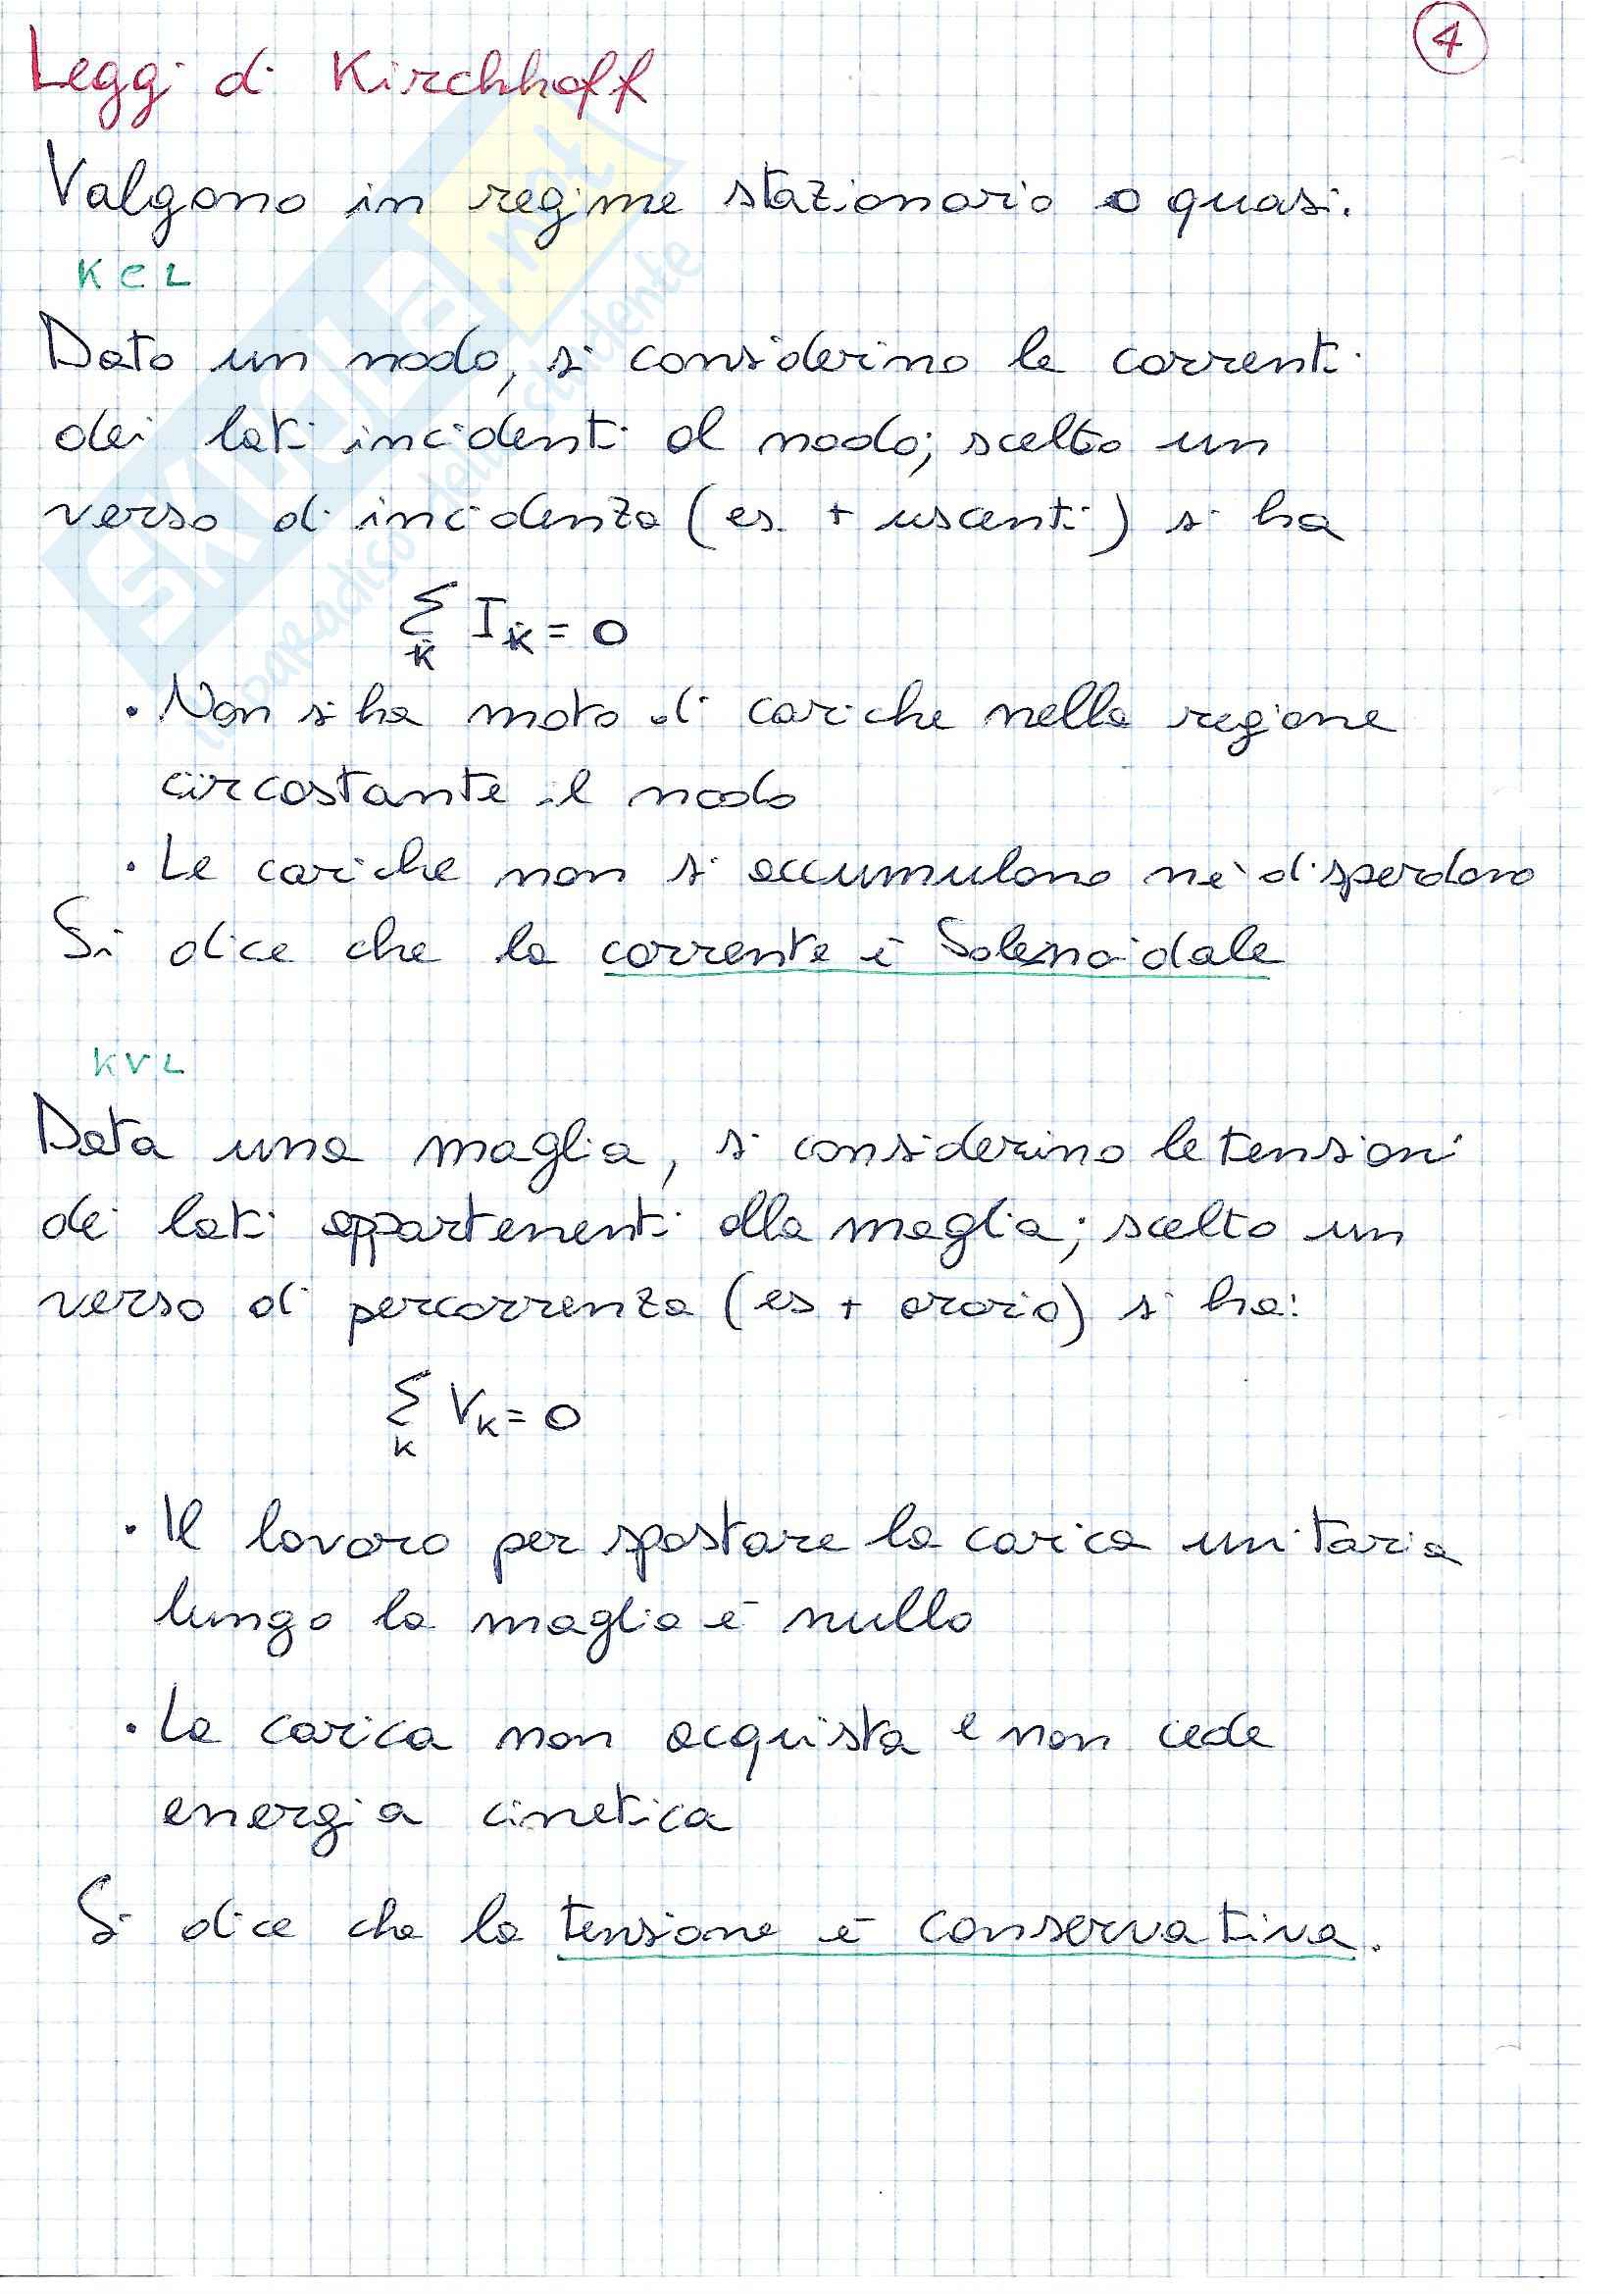 4
Leggi di Kirchhoff
Valgono in regime stazionario o quasi.
KCL
Dato un nodo, si considerino le correnti
dei lati incidenti al nodo; scelto un
verso di incidenza (es. + uscenti) si ha
∑ I_K = 0
K
• Non si ha moto di cariche nella regione
circostante il nodo
• Le cariche non si accumulano nè disperdono
Si dice che la corrente è Solenoidale
KVL
Data una maglia, si considerino le tensioni
dei lati appartenenti alla maglia; scelto un
verso di percorrenza (es + orario) si ha:
∑ V_K = 0
K
• Il lavoro per spostare la carica unitaria
lungo la maglia è nullo
• La carica non acquista e non cede
energia cinetica
Si dice che la tensione è conservativa.
SKUOLA.net
il paradiso dello studente